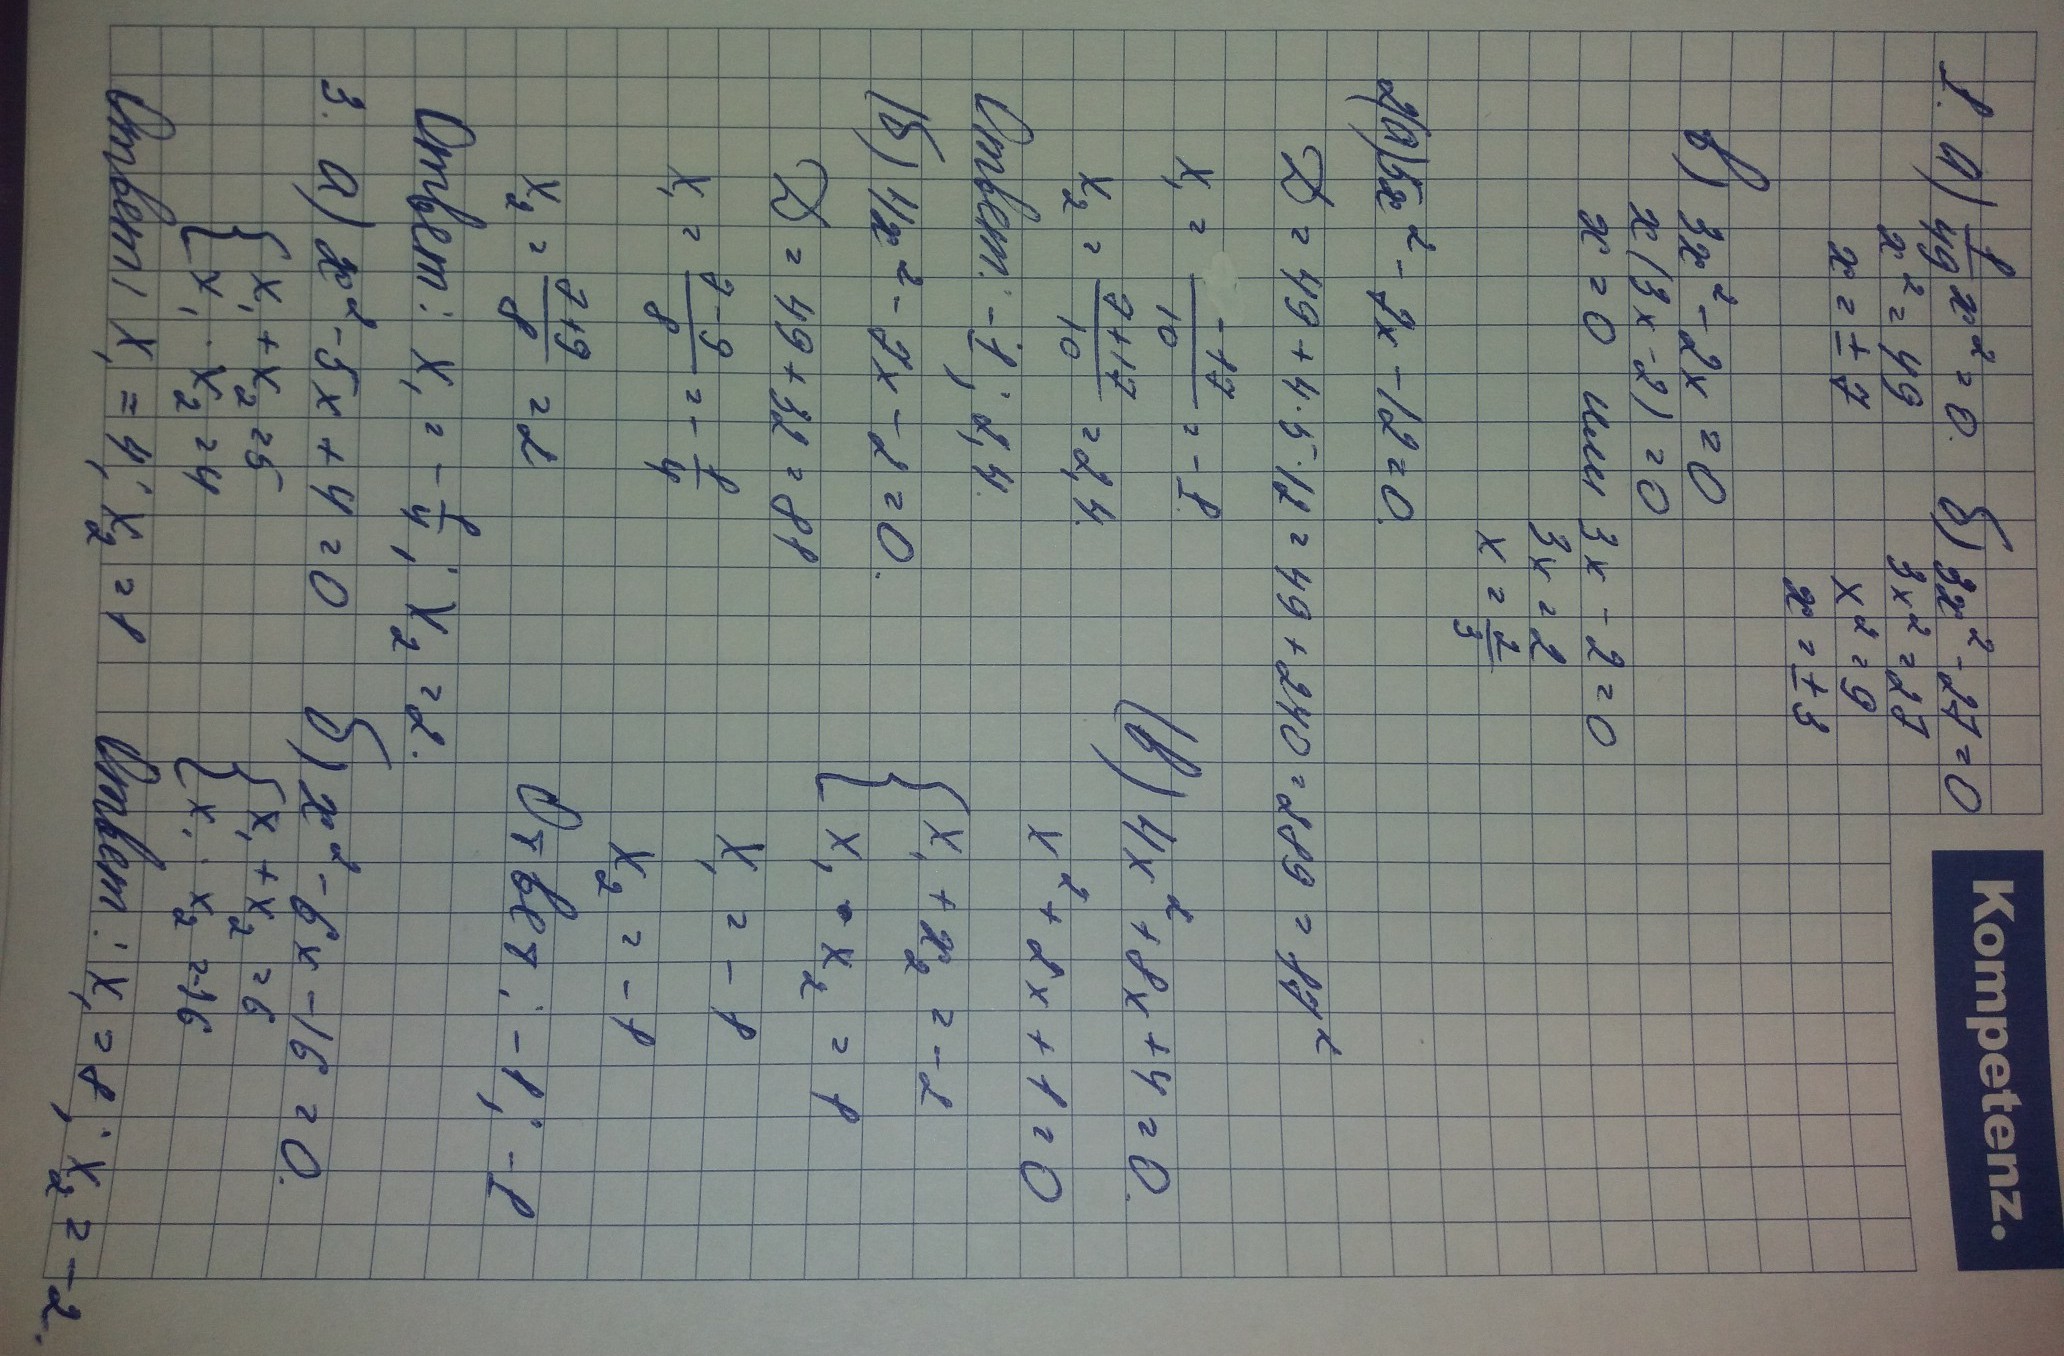 Kompetenz.
1. а) 1/49 x² = 0.
x² = 49
x = ±7
б) 3x² - 27 = 0
3x² = 27
x² = 9
x = ±3
в) 3x² - 2x = 0
x(3x - 2) = 0
x = 0 или 3x - 2 = 0
3x = 2
x = 2/3
2(а) 5x² - 7x - 12 = 0.
D = 49 + 4·5·12 = 49 + 240 = 289 = 17²
x₁ = -17/10 = -1.
x₂ = 7+17/10 = 2,4.
Ответ: -1; 2,4.
(б) 4x² - 7x - 2 = 0.
D = 49 + 32 = 81
x₁ = 7-9/8 = -1/4
x₂ = 7+9/8 = 2
Ответ: x₁ = -1/4; x₂ = 2.
(в) 4x² + 8x + 4 = 0.
x² + 2x + 1 = 0
{ x₁ + x₂ = -2
x₁ · x₂ = 1
x₁ = -1
x₂ = -1
Ответ: -1; -1
3. а) x² - 5x + 4 = 0
{ x₁ + x₂ = 5
x₁ · x₂ = 4
Ответ: x₁ = 4; x₂ = 1
б) x² - 6x - 16 = 0.
{ x₁ + x₂ = 6
x₁ · x₂ = -16
Ответ: x₁ = 8; x₂ = -2.